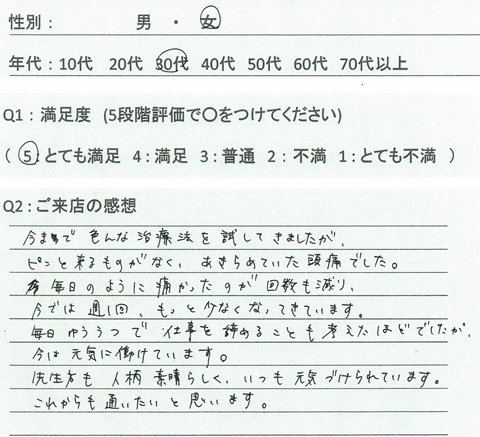 性別： 男 ・ 女
年代：10代 20代 30代 40代 50代 60代 70代以上
Q1：満足度 (5段階評価で〇をつけてください)
（ 5：とても満足 4：満足 3：普通 2：不満 1：とても不満 ）
Q2：ご来店の感想
今まで色んな治療法を試してきましたが、
ピンと来るものがなく、あきらめていた頭痛でした。
毎日のように痛かったのが回数も減り、
今では週1回、もっと少なくなってきています。
毎日ゆううつで仕事を辞めることも考えたほどでしたが、
今は元気に働けています。
先生方も人柄素晴らしく、いつも元気づけられています。
これからも通いたいと思います。